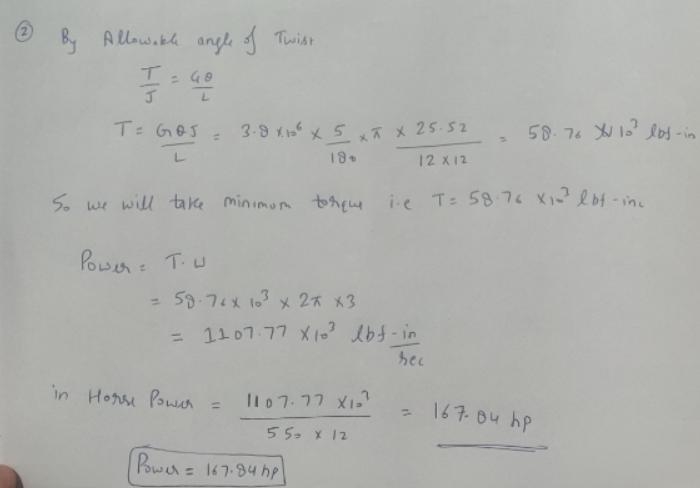 ② By Allowable angle of Twist
T/J = Gθ/L
T = GθJ/L = 3.8 × 10⁶ × 5/180 × π × 25.52/(12 × 12) = 58.76 × 10³ lbf-in
So we will take minimum torque i.e T = 58.76 × 10³ lbf-inc
Power = T.ω
= 58.76 × 10³ × 2π × 3
= 1107.77 × 10³ lbf-in/sec
in Horse Power = 1107.77 × 10³/(550 × 12) = 167.84 hp
Power = 167.84 hp